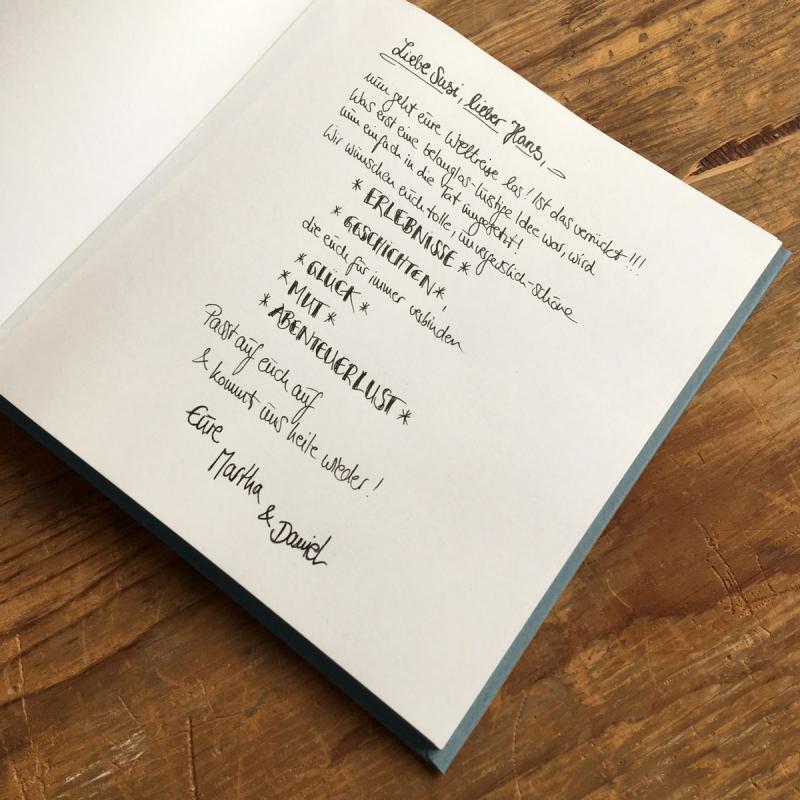 Liebe Susi, lieber Hans,
nun geht eure Weltreise los! Ist das verrückt!!!
Was erst eine belanglos-lustige Idee war, wird
nun einfach in die Tat umgesetzt!
Wir wünschen euch tolle, unvergesslich-schöne
* ERLEBNISSE *
* GESCHICHTEN *
die euch für immer verbinden
* GLÜCK *
* MUT *
* ABENTEUERLUST *
Passt auf euch auf
& kommt uns heile wieder!
Eure
Martha
& Daniel